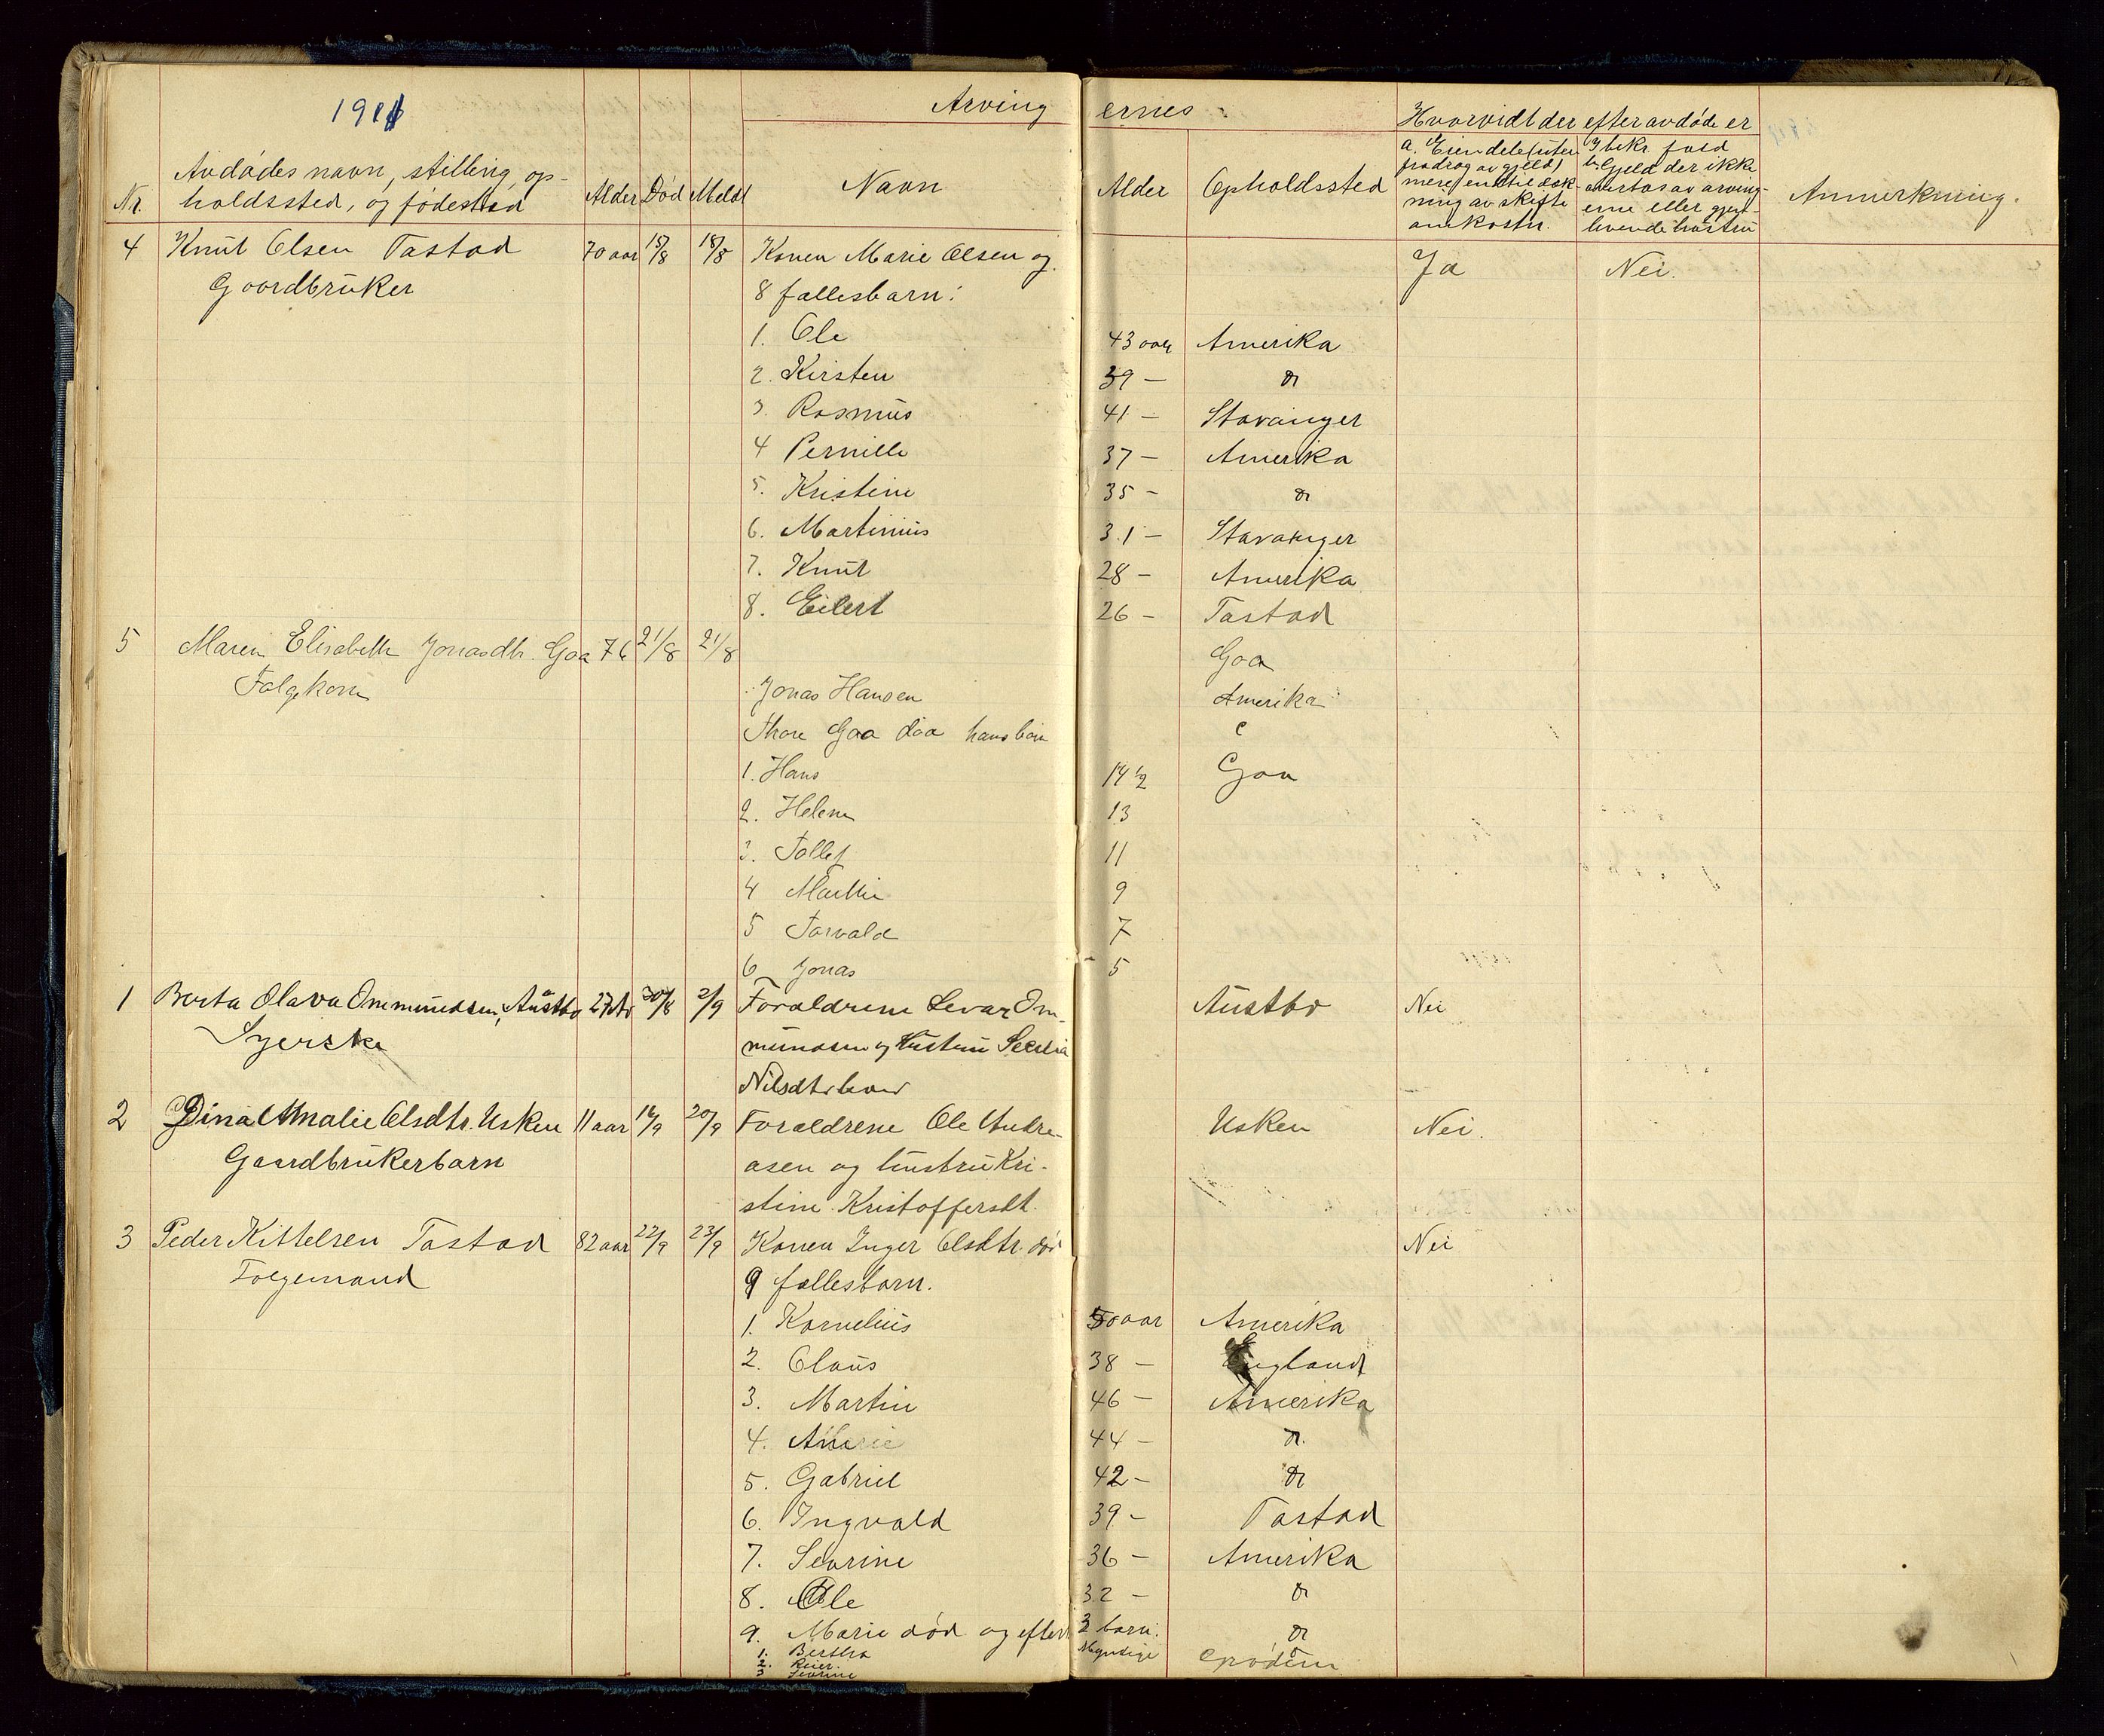 Arvingernes
Hvorvidt der efter avdøde er
Nr. Avdødes navn, stilling, opholdssted, og fødested Alder Død Meldt Navn Alder Opholdssted a. Eiendele (uten fradrag av gjeld) mere end til dækning av skifteomkostn. b. Gjeld der ikke overtas av arvingerne eller gjenlevende hustru Anmerkning.
4 Knut Olsen Tastad 70 aar 15/8 18/8 Konen Marie Olsen og Ja Nei.
Gaardbruker 8 fællesbarn:
1. Ole 43 aar Amerika
2. Kirsten 39 – do
3. Rasmus 41 – Stavanger
4 Pernille 37 – Amerika
5. Kristine 35 – do
6. Martinius 31 – Stavanger
7. Knut 28 – Amerika
8. Eilert 26 – Tastad
5 Maren Elisabeth Jonasdtr. Goa 76 21/8 21/8 Goa
Jonas Hansen Amerika
Thore Goa død hans børn
1. Hans 14 1/2 Goa
2. Helene 13
3. Tollef 11
4 Marthe 9
5 Torvald 7
6 Jonas 5
1 Berta Olava Ommundsen, Austbø 27 30/8 2/9 Forældrene Sevar Om- Austbø Nei
Syerske mundsen og Hustru
2 Dina Amalie Olsdtr. Usken 11 aar 16/9 20/9 Forældrene Ole Andre- Usken Nei.
Gaardbrukerbarn asen og hustru Kri-
stine Kristoffersdt.
3 Peder Kittelsen Tastad 82 aar 22/9 23/9 Konen Inger Olsdtr. død Nei
Folgemand 9 fællesbarn.
1. Kornelius 50 aar Amerika
2. Claus 38 – England
3. Martin 46 – Amerika
4. 44 – do
5. Gabriel 42 – do
6. Ingvald 39 – Tastad
7. Sevrine 36 – Amerika
8. Ole 32 – do
9. Marie død og efterl 3 barn: do
1. Bertha Myndige
2. Reier.
3 Sevrine